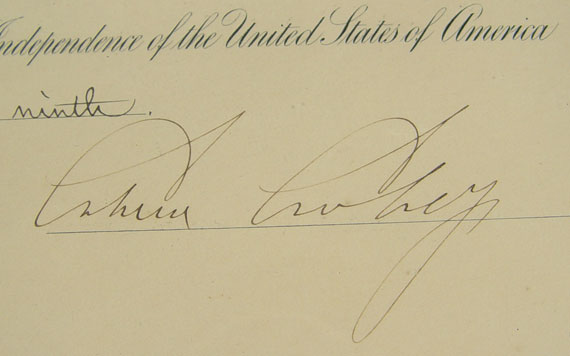 Independence of the United States of America
ninth.